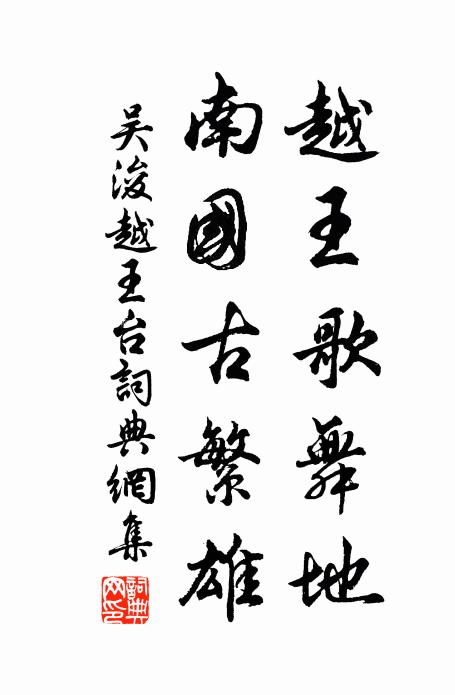 越王歌舞地
南國古繁雄
吴浚越王台詞典網集
詞典網印